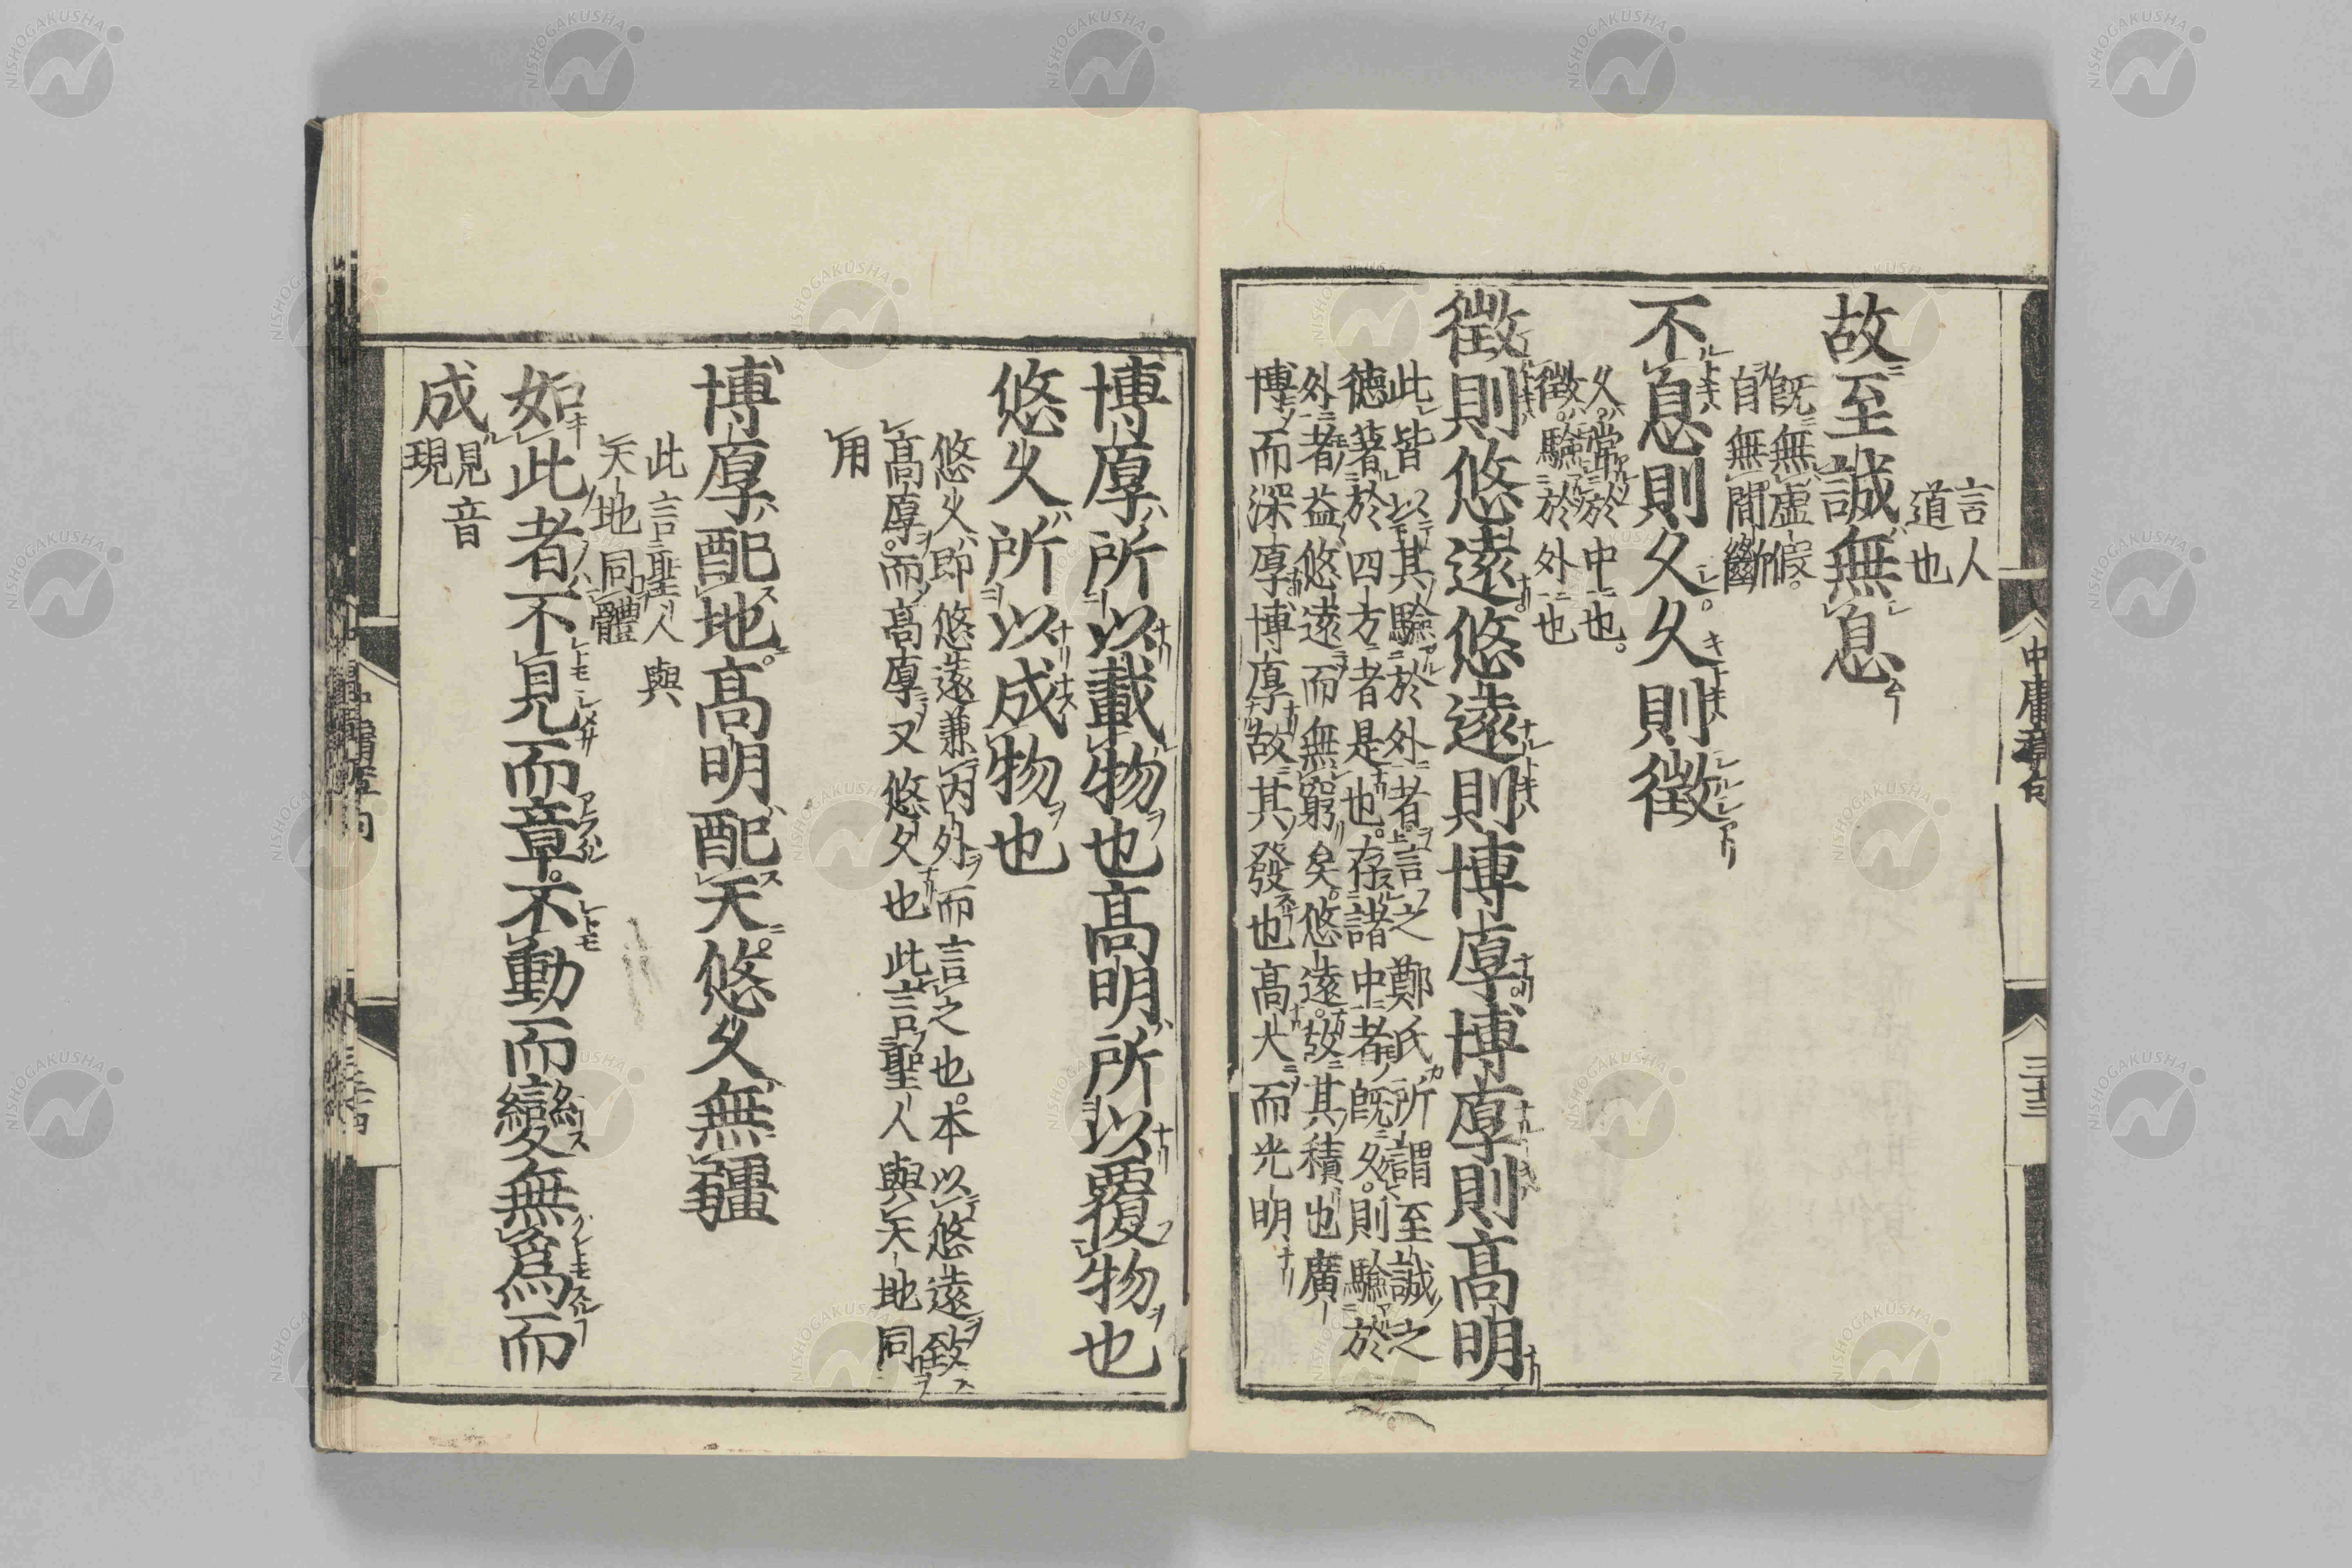 言人
道也
故至誠無息
既無虛假。
自無間斷
不息則久久則徵
久常於中也。
徵驗於外也
徵則悠遠悠遠則博厚博厚則高明
此皆以其驗於外者言之鄭氏所謂至誠之
德著於四方者是也。存諸中者既久。則驗於
外者益悠遠而無窮矣。悠遠。故其積也廣
博而深厚博厚故其發也高大而光明
博厚所以載物也高明所以覆物也
悠久所以成物也
悠久即悠遠兼內外而言之也。本以悠遠致
高厚。而高厚又悠久也此言聖人與天地同
用
博厚配地。高明配天。悠久無疆
此言聖人與
天地同體
如此者不見而章。不動而變無爲而
成
見音
現
中庸章句
三十三
NISHOGAKUSHA